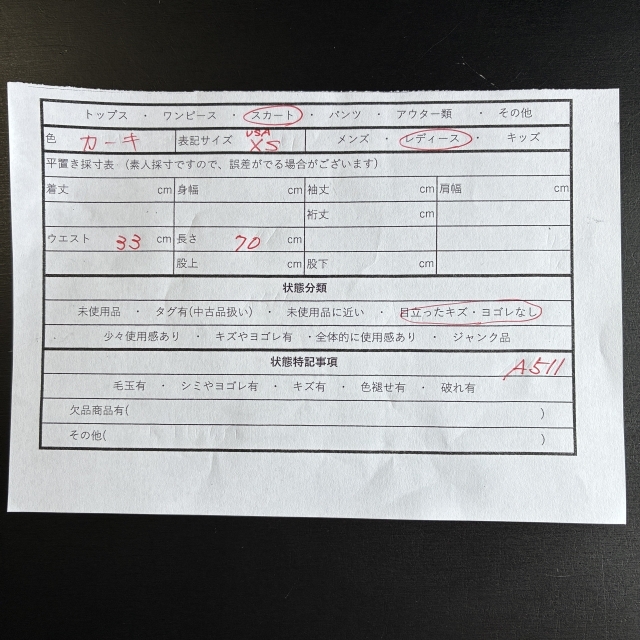 トップス ・ ワンピース ・ スカート ・ パンツ ・ アウター類 ・ その他
色 カーキ 表記サイズ USA XS メンズ ・ レディース ・ キッズ
平置き採寸表 (素人採寸ですので、誤差がでる場合がございます)
着丈 cm 身幅 cm 袖丈 cm 肩幅 cm
裄丈 cm
ウエスト 33 cm 長さ 70 cm
股上 cm 股下 cm
状態分類
未使用品 ・ タグ有(中古品扱い) ・ 未使用に近い ・ 目立ったキズ・ヨゴレなし
少々使用感あり ・ キズやヨゴレ有 ・全体的に使用感あり ・ ジャンク品
状態特記事項 A511
毛玉有 ・ シミやヨゴレ有 ・ キズ有 ・ 色褪せ有 ・ 破れ有
欠品商品有( )
その他( )